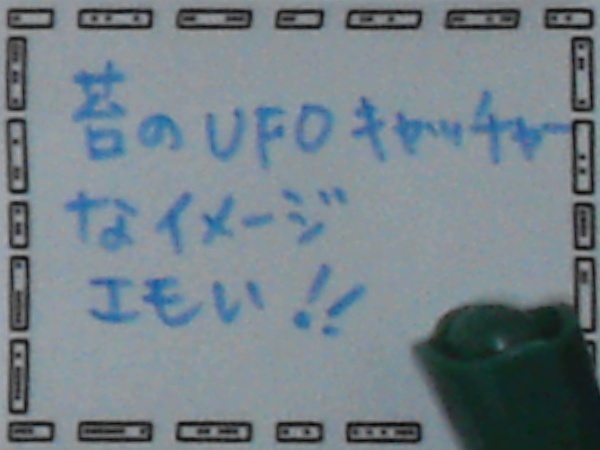 苔のUFOキャッチャー
なイメージ
エモい!!